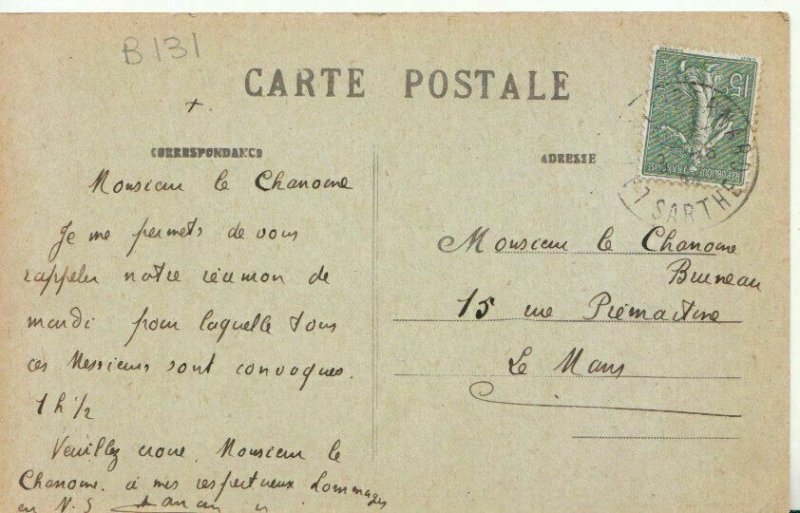 B131
CARTE POSTALE
CORRESPONDANCE
Monsieur le Chanoine
Je me permets de vous
rappeler notre réunion de
mardi pour laquelle tous
ces Messieurs sont convoqués.
1 h 1/2
Veuillez croire, Monsieur le
Chanoine, à mes respectueux hommages
en N. S.
ADRESSE
Monsieur le Chanoine
Bruneau
15 rue Prémartine
Le Mans
15c
POSTES
RÉPUBLIQUE FRANÇAISE
SARTHE